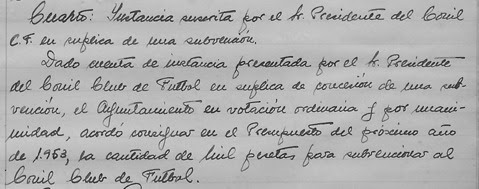 Cuarto: Instancia suscrita por el Sr. Presidente del Conil
C.F. en suplica de una subvención.
Dado cuenta de instancia presentada por el Sr. Presidente
del Conil Club de Futbol en suplica de concesión de una sub-
vención, el Ayuntamiento en votación ordinaria y por unani-
midad, acordo consignar en el Presupuesto del próximo año
de 1.953, la cantidad de Mil pesetas para subvencionar al
Conil Club de Futbol.